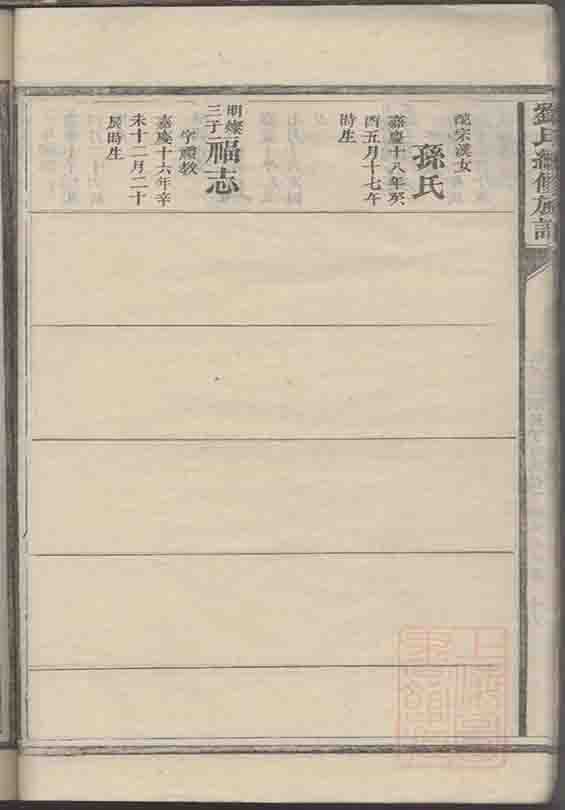 劉氏續修族譜
配宗漢女
孫氏
嘉慶十八年癸
酉五月十七午
時生
明燦
三子
福志
字禮教
嘉慶十六年辛
未十二月二十
辰時生